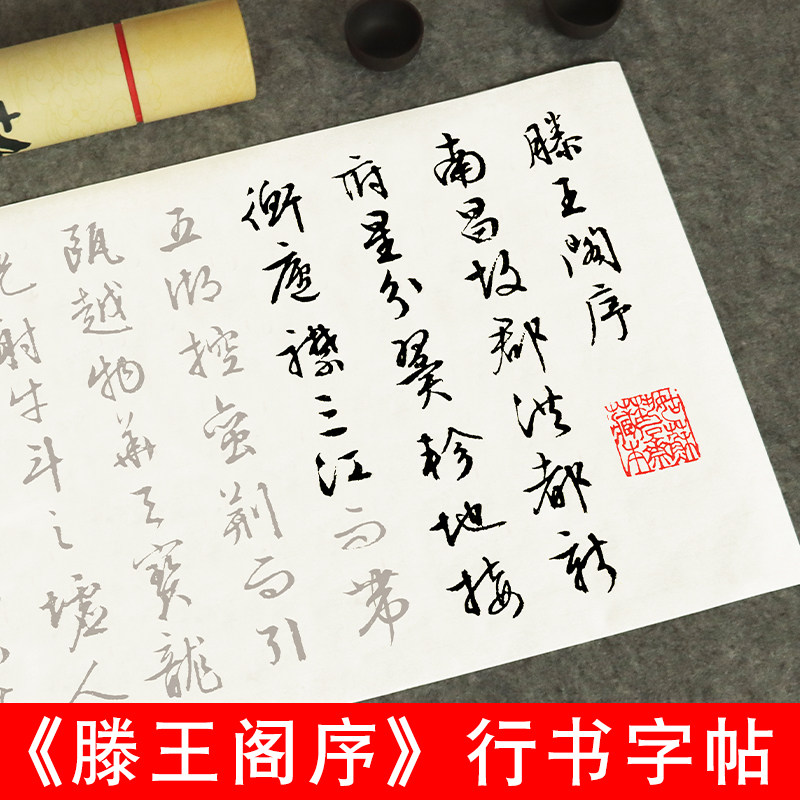 滕王閣序
南昌故郡洪都新
府星分翼軫地接
衡廬襟三江而帶
五湖控蠻荊而引
甌越物華天寶龍
光射牛斗之墟人
《滕王阁序》行书字帖